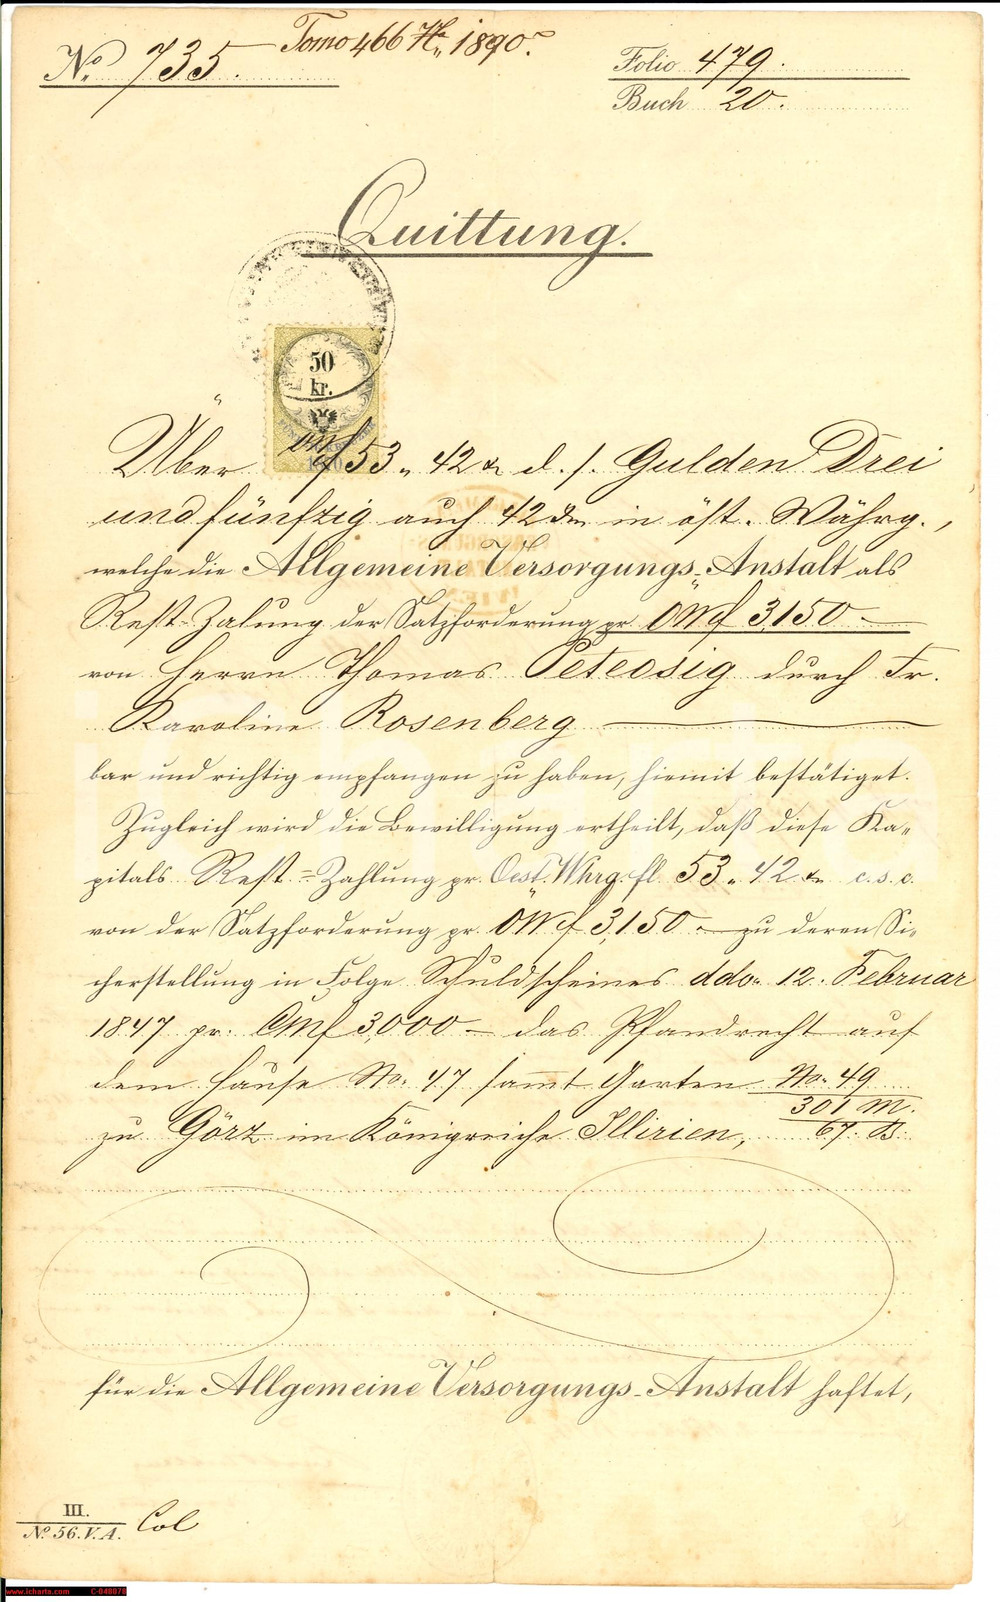 No. 735. Tomo 466 H„ 1890.
Folio 479.
Buch 20.
Quittung.
50
kr.
Über 53„ 42 d. /. Gulden Drei
und fünfzig auch 42 in öst. Währg.,
welche die Allgemeine Versorgungs-Anstalt als
Rest-Zalung der Satzforderung pr ÖWf 3,150 —
von Herrn Thomas durch Fr.
Karoline Rosenberg
bar und richtig empfangen zu haben, hiemit bestätiget.
Zugleich wird die Bewilligung ertheilt, daß diese Ka-
pitals Rest=Zahlung pr. Oest. Whrg. fl 53„ 42 c. s. c.
von der Satzforderung pr. ÖWf 3,150 – zu deren Si-
cherstellung in Folge Schuldscheines ddo. 12. Februar
1847 pr. CMf 3,000 – das Pfandrecht auf
dem Hause No. 47 sammt Garten No. 49
301 M.
zu Görz im Königreiche Illirien, 67. B.
für die Allgemeine Versorgungs-Anstalt haftet,
III.
No. 56. V. A. Col
www.icharta.com C-048078